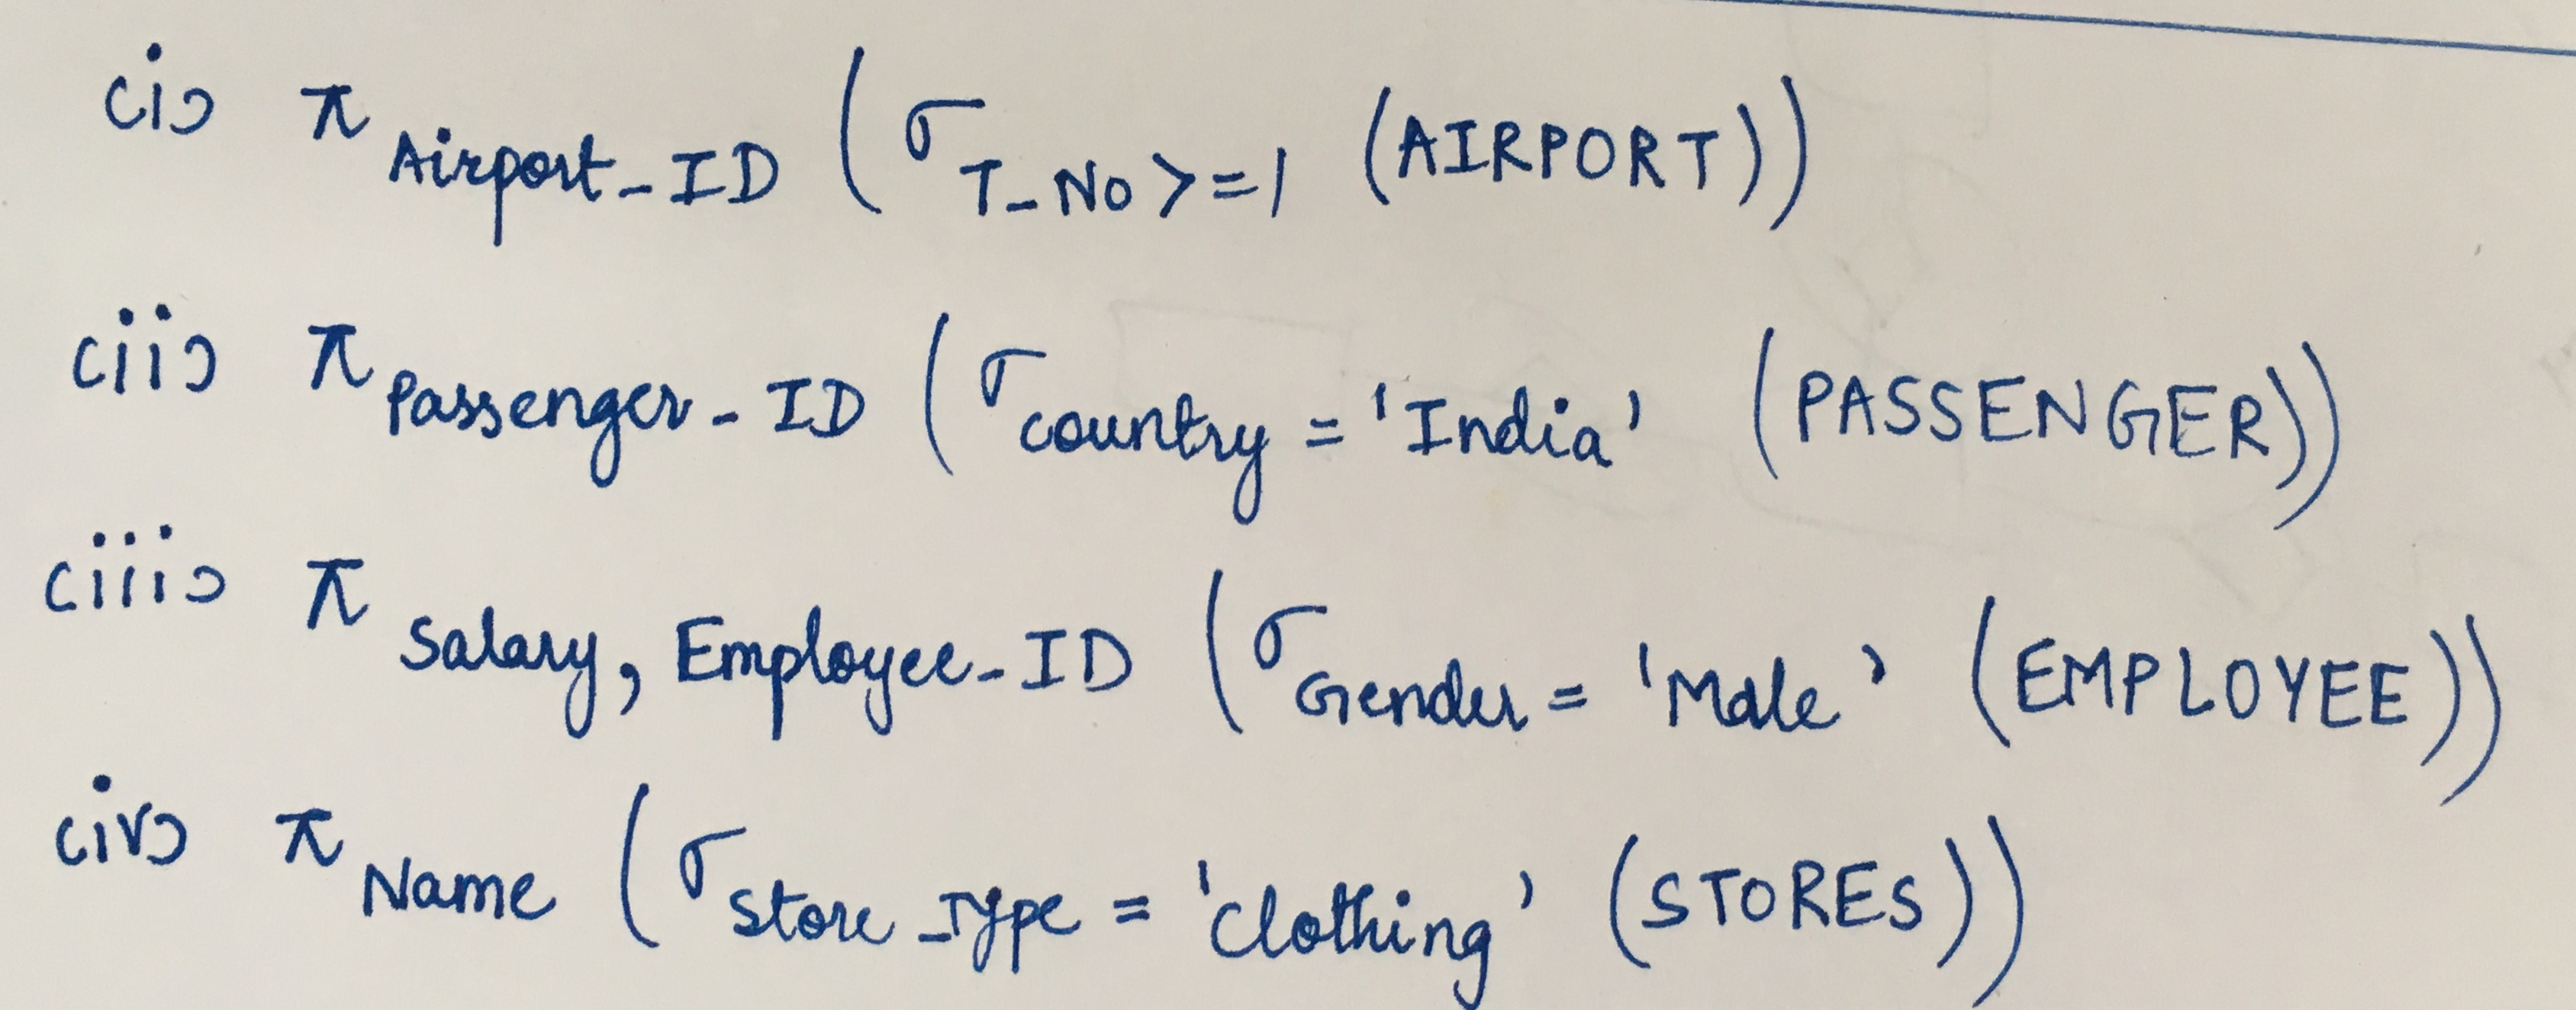 (i) π Airport_ID (σ T_No >=1 (AIRPORT))
(ii) π Passenger_ID (σ country = 'India' (PASSENGER))
(iii) π Salary, Employee_ID (σ Gender = 'Male' (EMPLOYEE))
(iv) π Name (σ Store_Type = 'Clothing' (STORES))